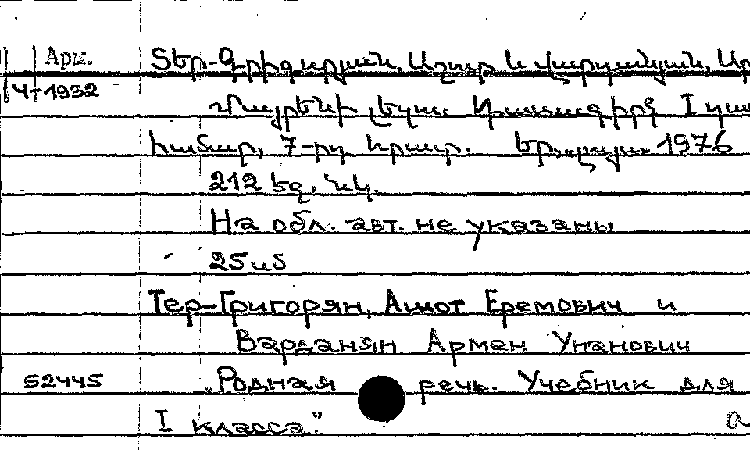 Арм. Տեր-Գրիգորյան, Աշոտ և Վարդանյան, Ար
4-1932
Մայրենի լեզու. Դասագիրք I դաս
համար, 7-րդ հրատ. Եր., 1976
212 եզ, նկ.
На обл. авт. не указаны
25
Тер-Григорян, Ашот Еремович и
Варданян Арман Унанович
52445 „Родная речь. Учебник для
I класса"